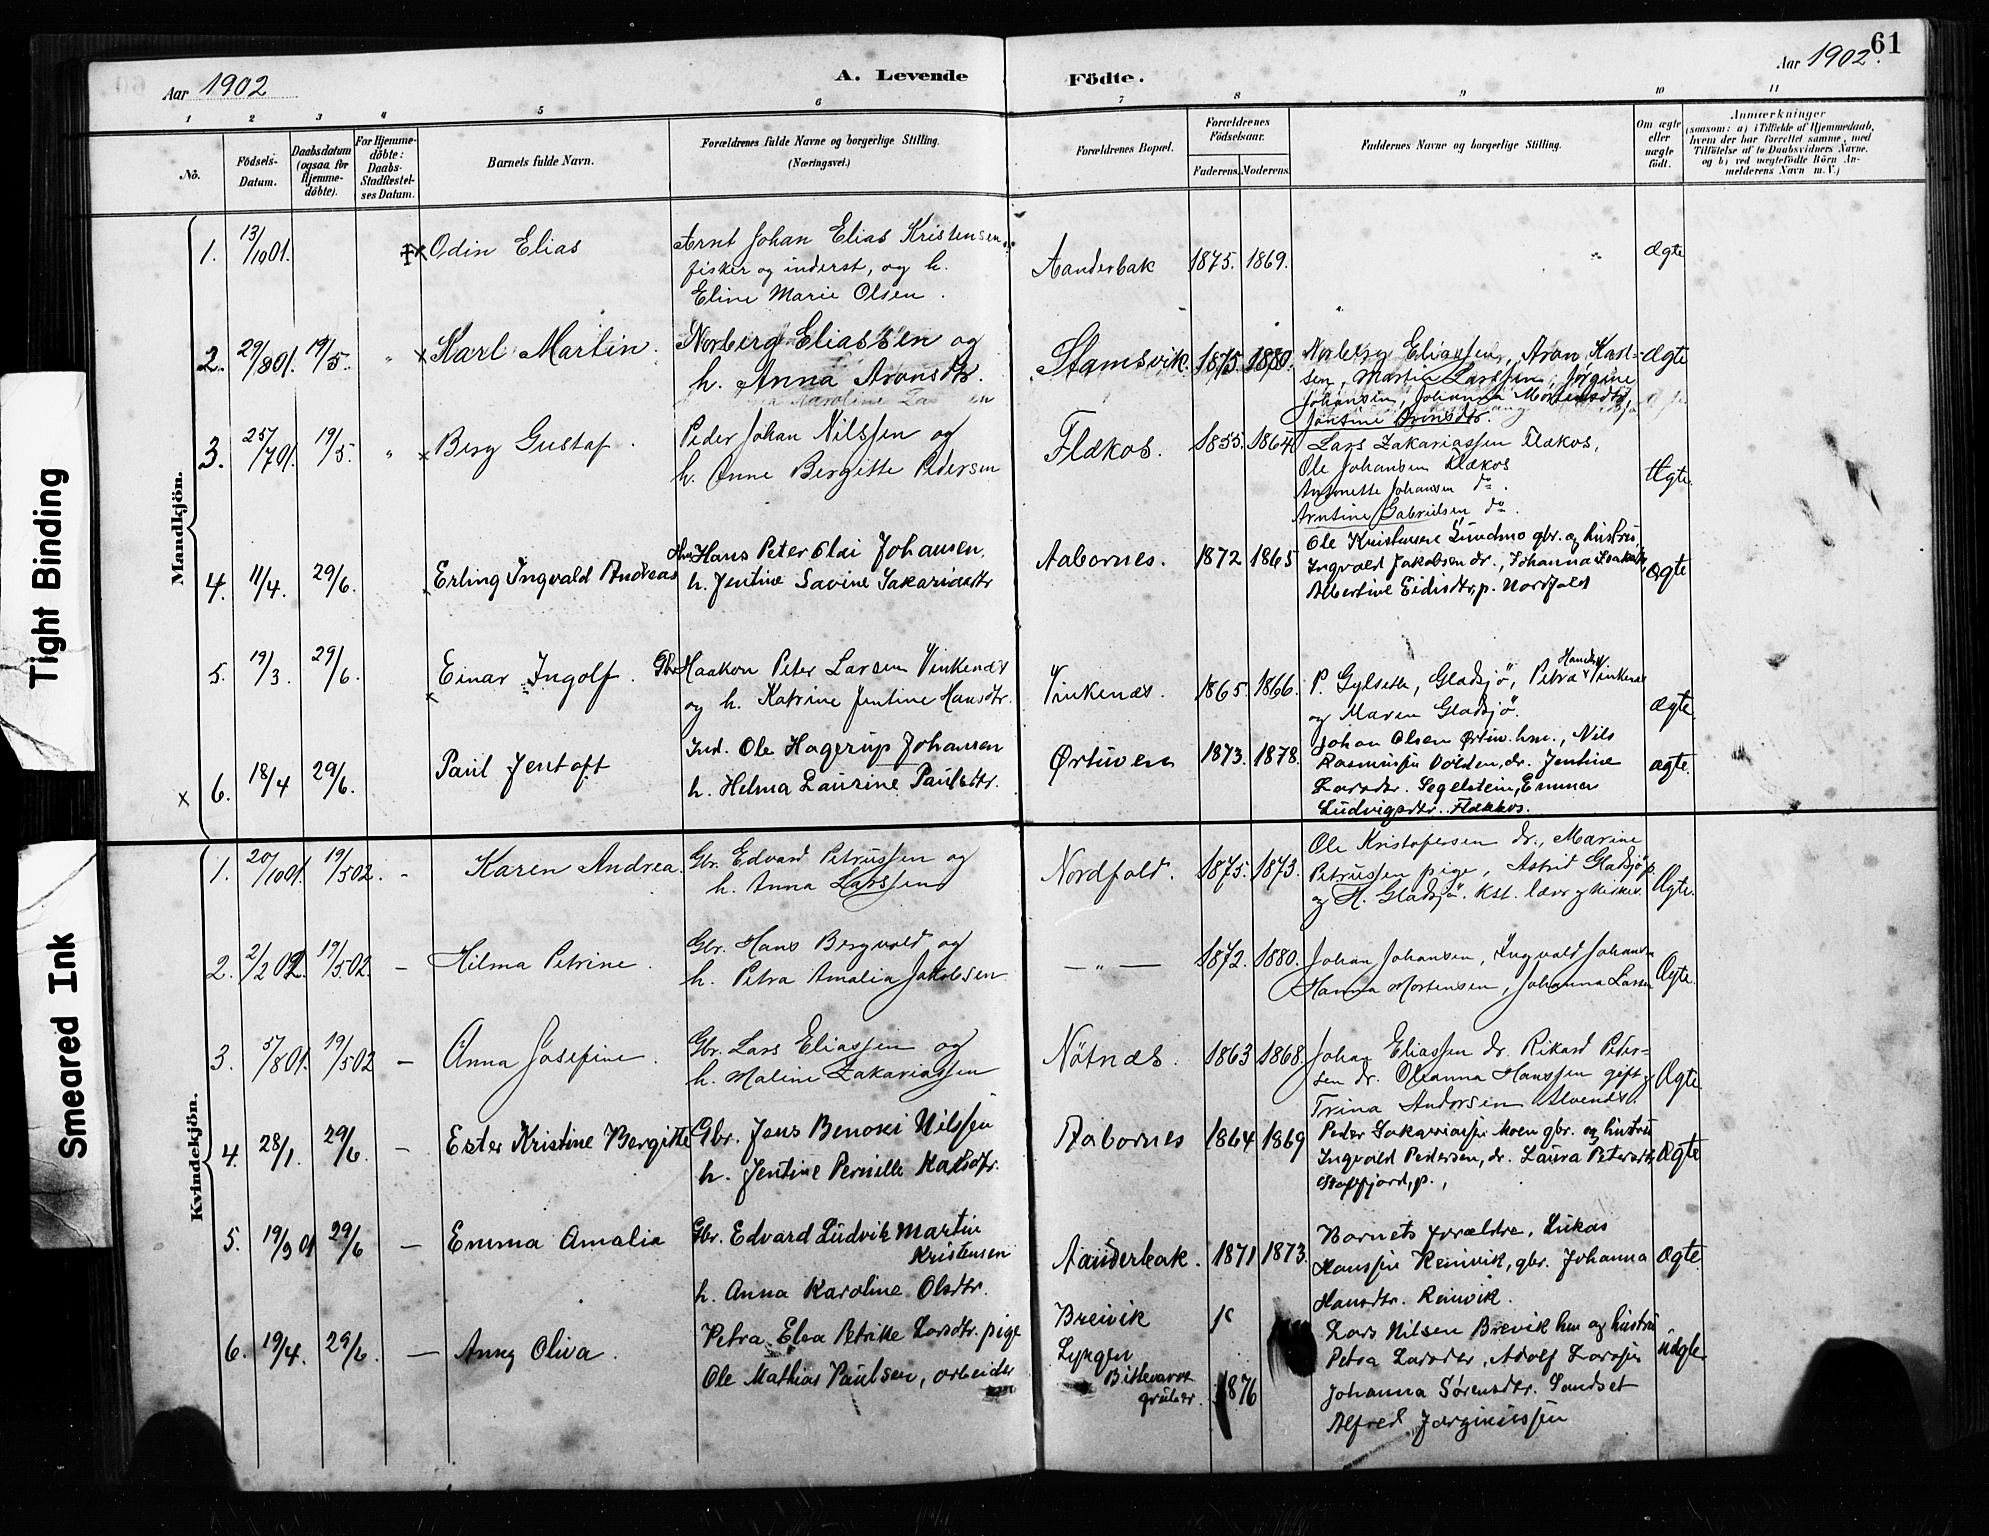 61
Aar 1902
A. Levende Födte.
Aar 1902.
1 2 3 4 5 6 7 8 9 10 11
No.
Födsels-
Datum.
Daabsdatum
(ogsaa for
Hjemme-
döbte).
For Hjemme-
döbte:
Daabs-
Stadfæstel-
ses Datum.
Barnets fulde Navn.
Forældrenes fulde Navne og borgerlige Stilling.
(Næringsvei.)
Forældrenes Bopæl.
Forældrenes
Födselsaar.
Faderens. Moderens.
Faddernes Navne og borgerlige Stilling.
Om ægte
eller
uægte
födt.
Anmærkninger
(saasom: a) i Tilfælde af Hjemmedaab,
hvem der har forrettet samme, med
Tilföielse af to Daabsvidners Navne,
og b) ved uægtefödte Börn An-
melderens Navn m. V.)
Mandkjön.
1. 13/10 01. Odin Elias
Arnt Johan Elias Kristensen
fisker og inderst, og h.
Eline Marie Olsen.
Aanderbak 1875. 1869. Ægte
2. 29/8 01. 19/5. " x Karl Martin.
Norberg Eliassen og
h. Anna Aronsdtr.
Stamsvik. 1875. 1880.
Norberg Eliassen, Aron Karl-
sen, Martin Larssen, Jørgine
Johansen, Johanna Mortensdtr,
Jentine Aronsdtr.
Ægte
3. 25/7 01. 19/5. " x Berg Gustaf.
Peder Johan Nilssen og
h. Anne Bergitte Pedersen
Flækos. 1855. 1864
Lars Zakariassen Flækos,
Ole Johansen Flækos
Antonette Johansen do.
Arntine Gabrielsen do.
Ægte.
4. 11/4. 29/6. Erling Ingvald Andreas
Hans Peter Elai Johansen,
h. Jentine Savine Sakariasdtr
Aabornes. 1872 1865
Ole Kristensen Sundmo gbr. og hustru,
Ingvald Jakobsen dr., Johanna
Albertine Eidisdtr, p. Nordfold
Ægte
5. 19/3. 29/6. x Einar Ingolf.
Gbr Haakon Peter Larsen Vinkenes
og h. Katrine Jentine Hansdtr.
Vinkenæs. 1865. 1866.
P. Gylseth, Gladsjö, Petra Vinkenes
og Maren Gladsjö.
Ægte
x 6. 18/4 29/6. Paul Jentoft
Ind. Ole Hagerup Johansen
h. Helma Laurine Paulsdtr.
Ørtuven 1873. 1878.
Johan Olsen Ørtuv. hm., Nils
Rasmussen Volden, dr. Jentine
Larsdtr. Segelstein, Emma
Ludvigsdtr. Flækkos.
ægte.
Kvindekjön.
1. 20/10 01. 19/5 02. - Karen Andrea.
Gbr. Edvard Petrussen og
h. Anna Larssen
Nordfold. 1875. 1873.
Ole Kristofersen dr., Marine
Petrussen pige, Astrid Gladsjö p.
og H. Gladsjö. Kst. lærer
Ægte.
2. 2/2 02. 19/5 02. - Hilma Petrine.
Gbr. Hans Bergvald og
h. Petra Amalia Jakobsen.
— " — 1872. 1880.
Johan Johansen, Ingvald Johansen
Hanna Mortensen, Johanna Larsen
Ægte.
3. 5/8 01. 19/5 02 - Anna Josefine.
Gbr. Lars Eliassen og
h. Maline Zakariassen
Nötnæs. 1863 1868.
Johan Eliassen dr. Rikard Peder-
sen dr. Oleanna Hanssen gift,
Trina Andorsen Alvenes.
Ægte
4. 28/1. 29/6. - Ester Kristine Bergitte
Gbr. Jens Benoni Nilssen
h. Jentine Pernille Karlsdtr.
Aabornes 1864 1869
Peder Sakariassen Moen gbr. og hustru
Ingvald Pedersen, dr. Laura Petersdtr,
p.,
Ægte
5. 19/9 01 29/6 - Emma Amalia
Gbr. Edvard Ludvik Martin
Kristensen
h. Anna Karoline Olsdtr.
Aanderbak. 1871 1873.
Barnets forældre, Lukas
Hanssen Reinvik, gbr. Johanna
Hansdtr. Reinvik.
Ægte.
6. 19/4. 29/6. - Anny Oliva.
Petra Elea Petrikke Larsdtr. pige
Ole Mathias Paulsen, arbeider
Breivik
Lyngen
gruber.
1876
Lars Nilsen Brevik hm og hustru
Petra Larsdtr, Adolf Larssen
Johanna Sørensdtr. Sandset
Alfred Jørginussen
Uægte
Tight Binding
Smeared Ink